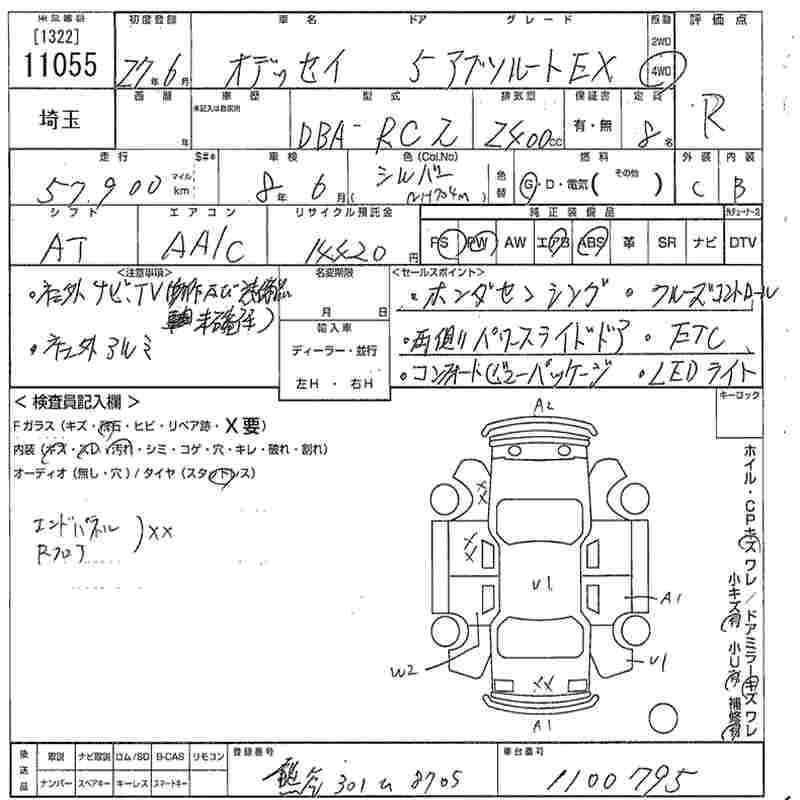 [1322]
11055
埼玉
初度登録
27年6月
西暦
年
車名 ドア グレード
オデッセイ 5 アブソルートEX
駆動
2WD
4WD
評価点
R
車歴
未記入は自家用
型式
DBA-RC2
排気量
2400cc
保証書
有・無
定員
8名
走行 $#*
57,900
マイル
km
車検
8年6月
色(Col.No)
シルバー
(NH704M)
色替
燃料
G・D・電気( その他 )
外装
C
内装
B
シフト
AT
エアコン
AA/C
リサイクル預託金
14420円
純正装備品
PS PW AW エアB ABS 革 SR ナビ DTV
<注意事項>
・社外ナビ、TV
・社外アルミ
名変期限
月 日
輸入車
ディーラー・並行
左H・右H
<セールスポイント>
・ホンダセンシング ・クルーズコントロール
・両側パワースライドドア ・ETC
・コンフォートビューパッケージ ・LEDライト
<検査員記入欄>
Fガラス(キズ・飛石・ヒビ・リペア跡・X要)
内装(キズ・スレ・汚れ・シミ・コゲ・穴・キレ・破れ・割れ)
オーディオ(無し・穴)/タイヤ(スタッドレス)
エンドパネル
Rフロア
)XX
キーロック
A2
XX
XX
U1
A1
W2
U1
XX
A1
ホイル・CPキズワレ/ドアミラーキズワレ
小キズ有 小U有 補修有
後送品
取説 ナビ取説 ロム/SD B-CAS リモコン
ナンバー スペアキー キーレス スマートキー
登録番号
熊谷 301 ム 2705
車台番号
1100795